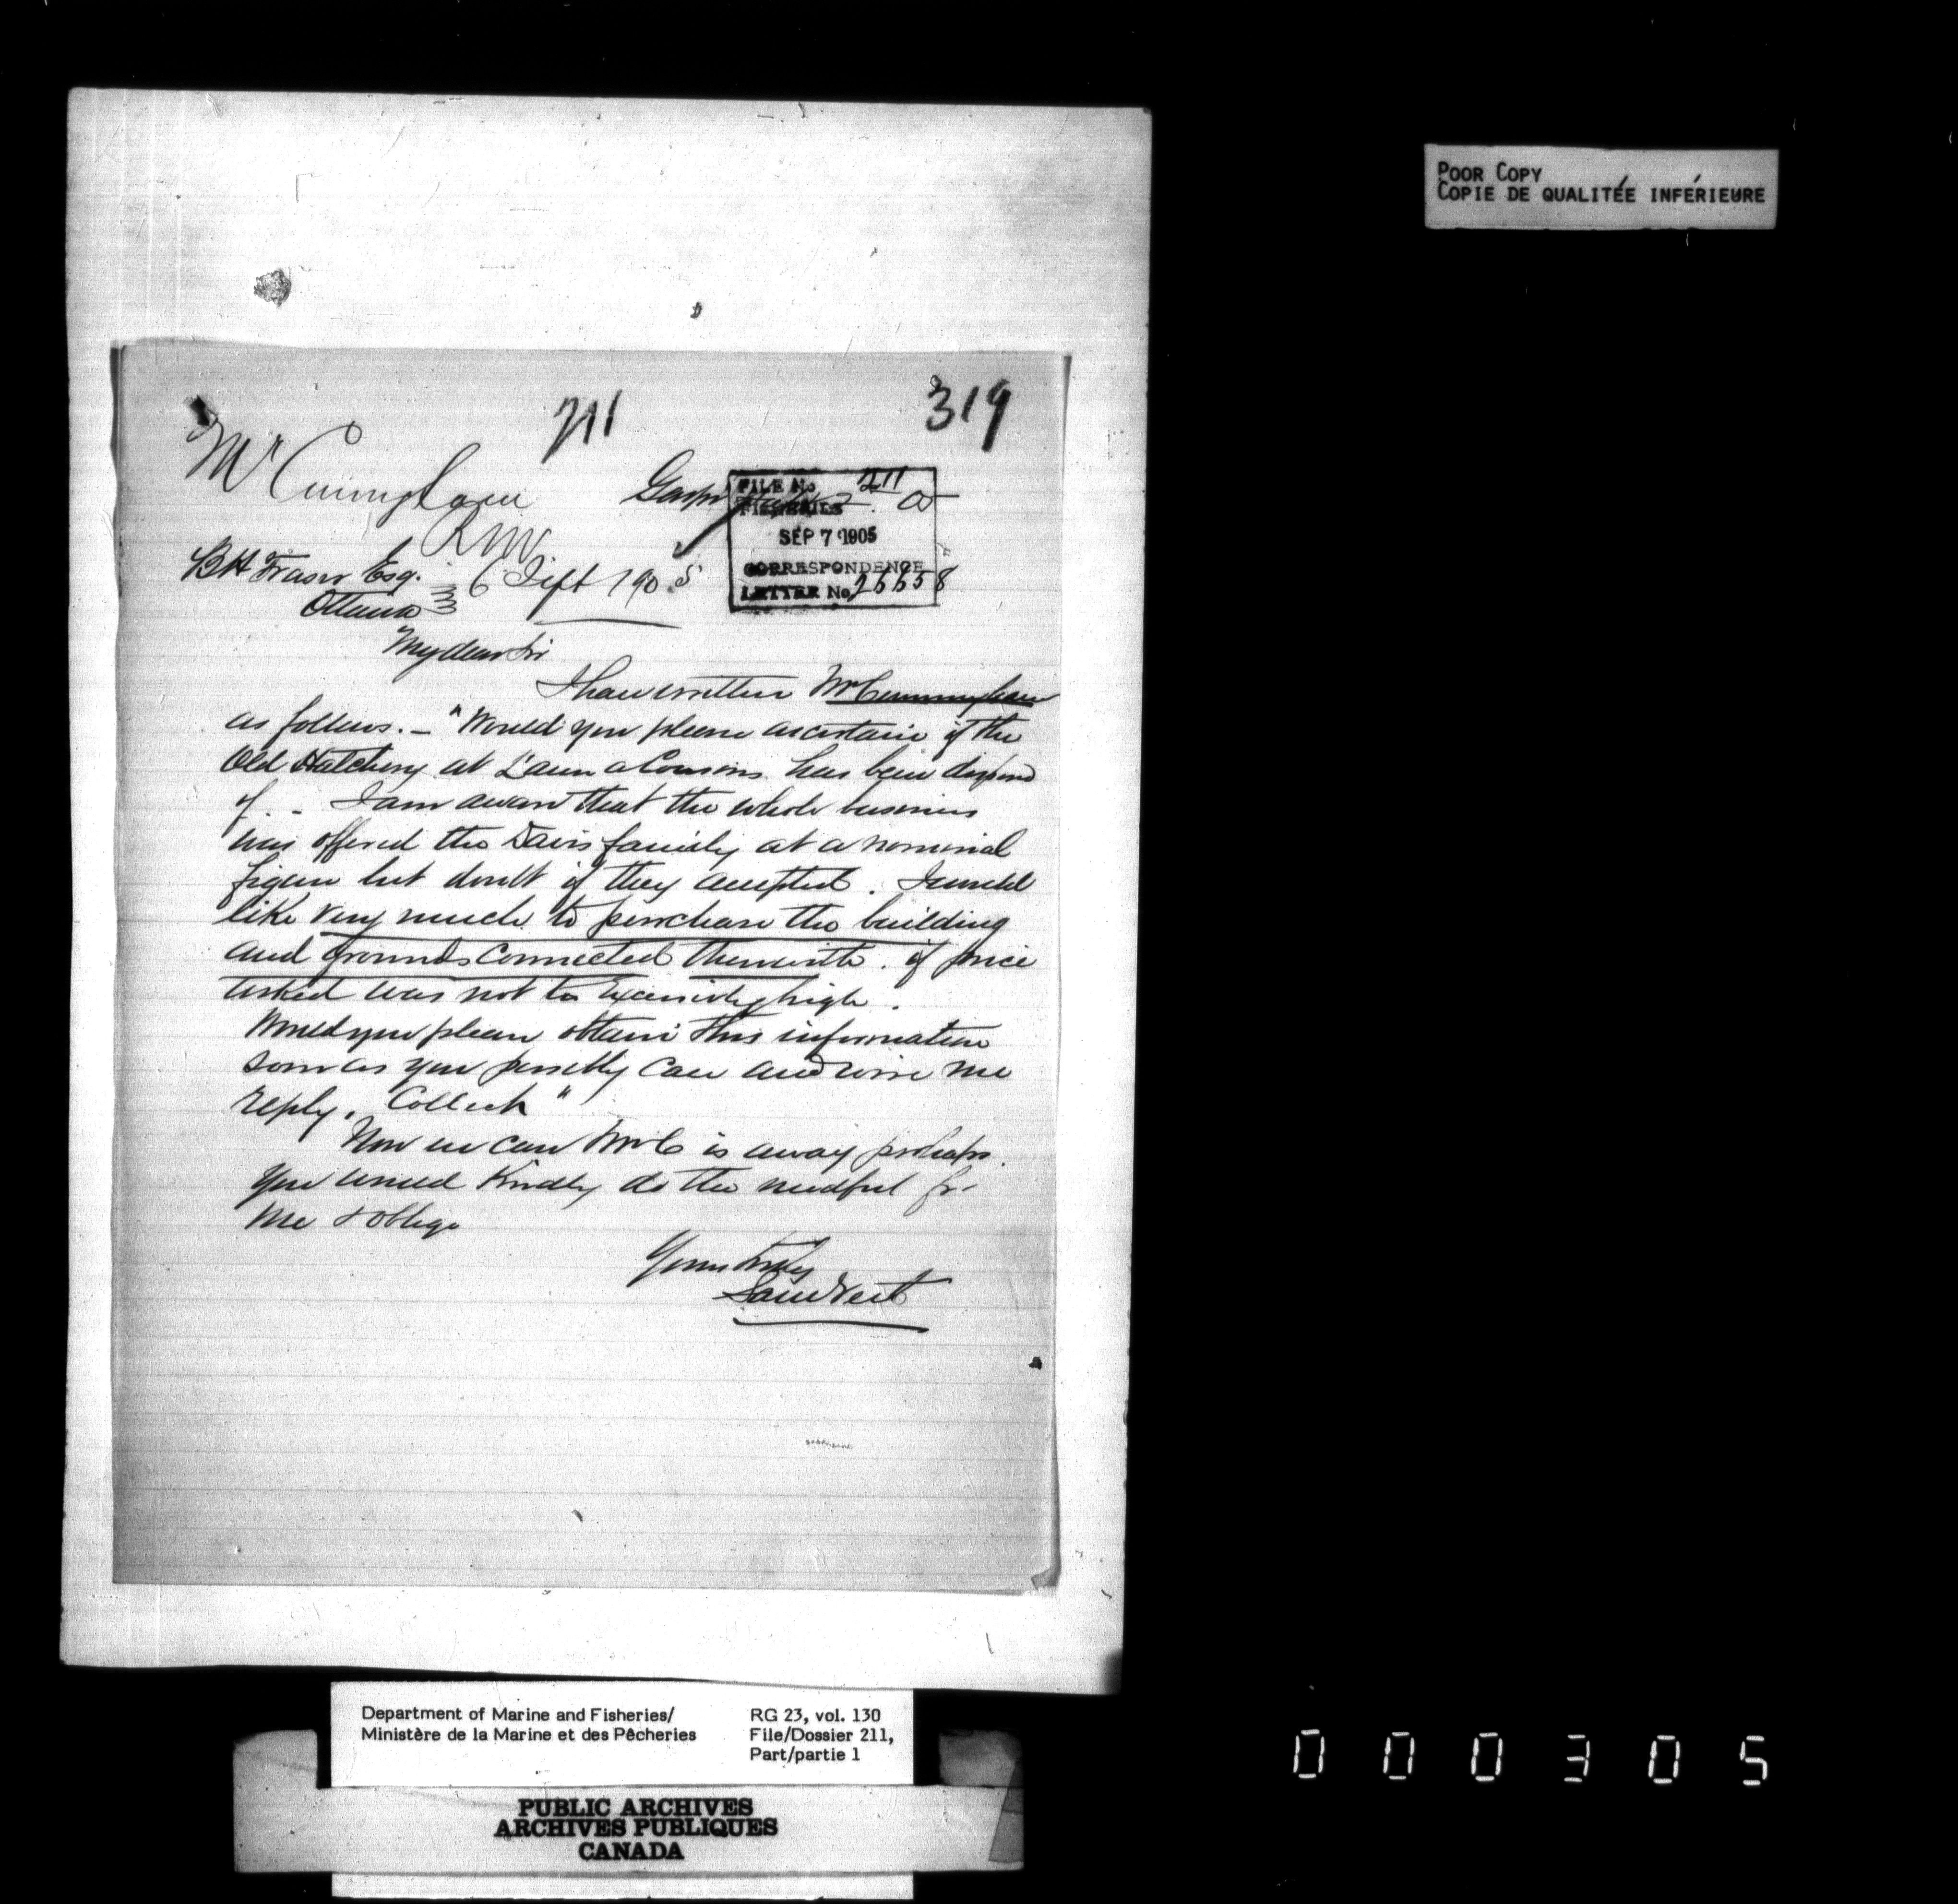 POOR COPY
COPIE DE QUALITÉE INFÉRIEURE
211
319
Mr Cunningham
RNV
FILE No 211
FISHERIES
SEP 7 1905
CORRESPONDENCE
LETTER No 26658
Gaspe
05
BH Fraser Esq.
Ottawa
6 Sept 1905
My dear Sir
I have written Mr Cunningham
as follows. — "Would you please ascertain if the
Old Hatchery at L'anse a Cousins has been disposed
of. - I am aware that the whole business
was offered the Davis family at a nominal
figure but doubt if they accepted. I would
like very much to purchase the building
and grounds connected therewith. if price
asked was not to excessively high.
Would you please obtain this information
soon as you possibly can and wire me
reply. Collect"
Now in case Mr C is away perhaps
you would Kindly do the needful for
me & oblige
Yours truly
Department of Marine and Fisheries/
Ministère de la Marine et des Pêcheries
RG 23, vol. 130
File/Dossier 211,
Part/partie 1
PUBLIC ARCHIVES
ARCHIVES PUBLIQUES
CANADA
000305